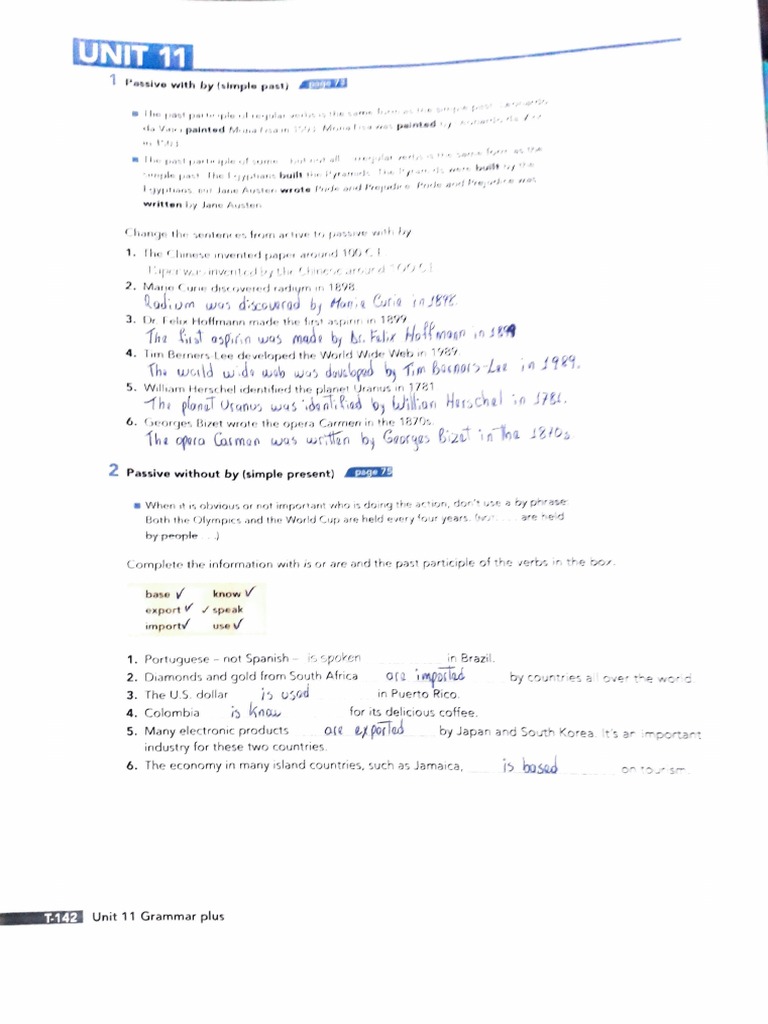 UNIT 11
1 Passive with by (simple past) page 73
The past participle of regular verbs is the same form as the simple past: Leonardo
da Vinci painted Mona Lisa in 1503. Mona Lisa was painted by Leonardo da Vinci
in 1503.
The past participle of some – but not all – irregular verbs is the same form as the
simple past: The Egyptians built the Pyramids. The Pyramids were built by the
Egyptians. BUT Jane Austen wrote Pride and Prejudice. Pride and Prejudice was
written by Jane Austen.
Change the sentences from active to passive with by
1. The Chinese invented paper around 100 C.E.
Paper was invented by the Chinese around 100 C.E.
2. Marie Curie discovered radium in 1898.
Radium was discovered by Marie Curie in 1898.
3. Dr. Felix Hoffmann made the first aspirin in 1899.
The first aspirin was made by Dr. Felix Hoffmann in 1899
4. Tim Berners-Lee developed the World Wide Web in 1989.
The world wide web was developed by Tim Berners-Lee in 1989.
5. William Herschel identified the planet Uranus in 1781.
The planet Uranus was identified by Willian Herschel in 1781.
6. Georges Bizet wrote the opera Carmen in the 1870s.
The opera Carmen was written by Georges Bizet in the 1870s
2 Passive without by (simple present) page 75
When it is obvious or not important who is doing the action, don't use a by phrase:
Both the Olympics and the World Cup are held every four years. (NOT: . . . are held
by people . . .)
Complete the information with is or are and the past participle of the verbs in the box.
base ✓ know ✓
export ✓ ✓ speak
import ✓ use ✓
1. Portuguese – not Spanish – is spoken in Brazil.
2. Diamonds and gold from South Africa are imported by countries all over the world.
3. The U.S. dollar is used in Puerto Rico.
4. Colombia is know for its delicious coffee.
5. Many electronic products are exported by Japan and South Korea. It's an important
industry for these two countries.
6. The economy in many island countries, such as Jamaica, is based on tourism.
T-142 Unit 11 Grammar plus